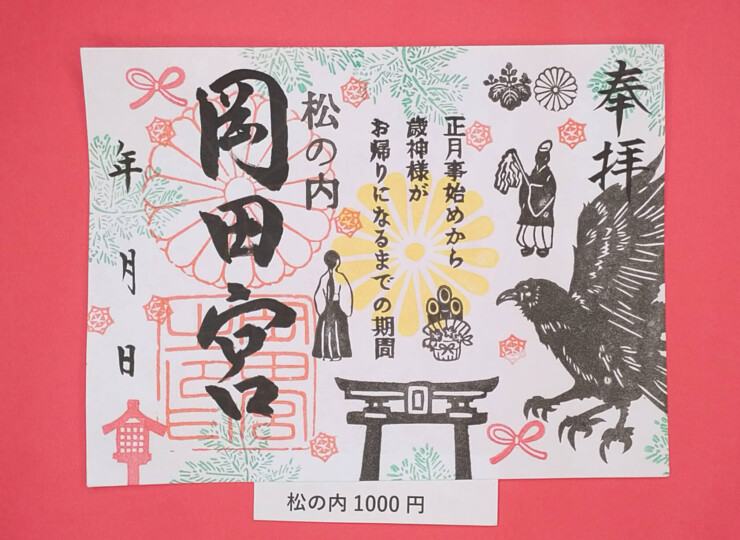 奉拝
正月事始めから
歳神様が
お帰りになるまでの期間
松の内
岡田宮
年 月 日
松の内1000円